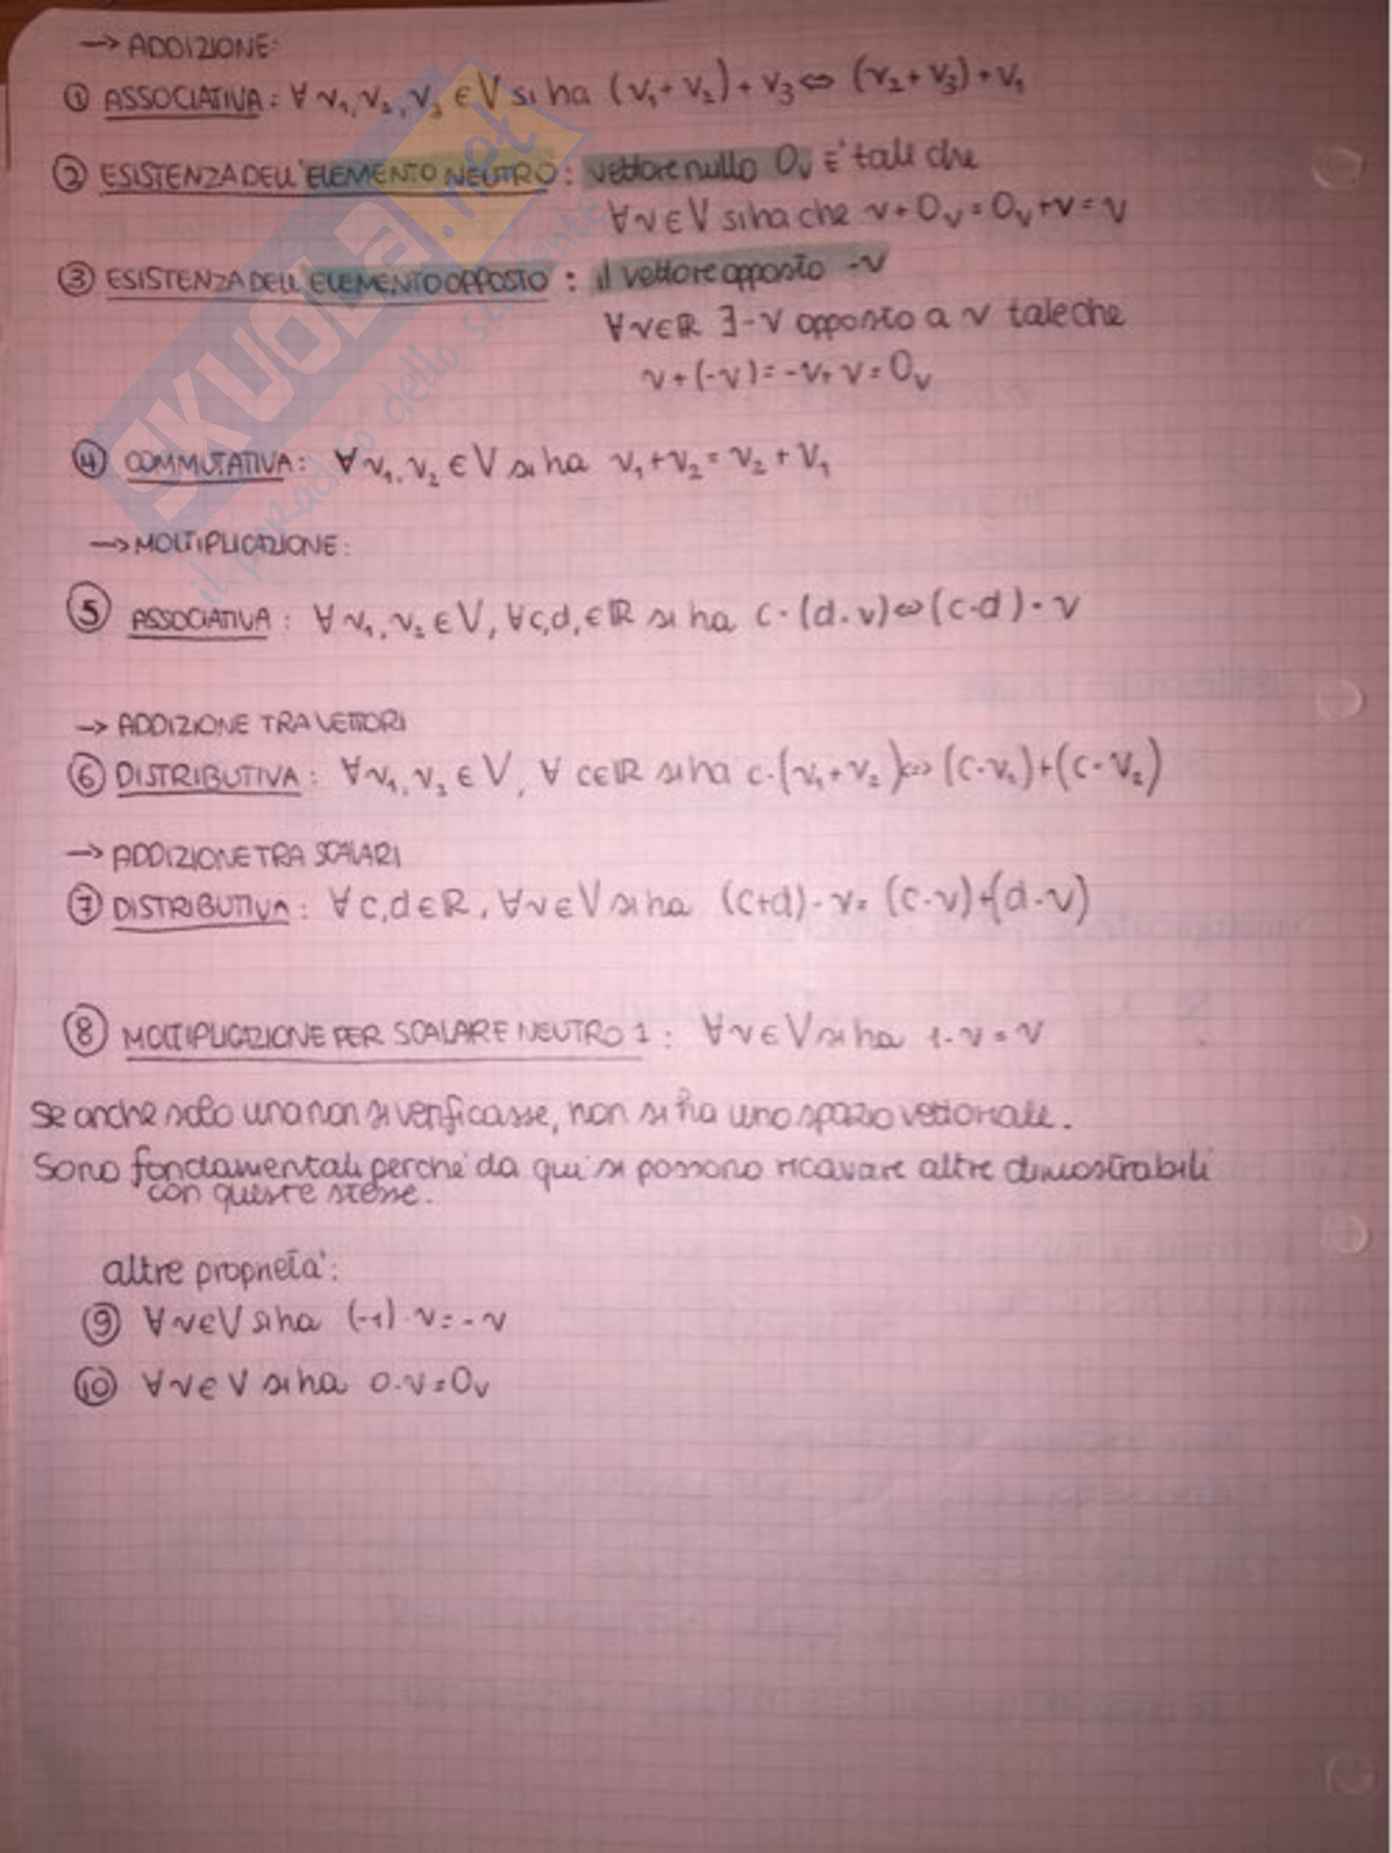 → ADDIZIONE:
① ASSOCIATIVA: ∀ v₁, v₂, v₃ ∈ V si ha (v₁ + v₂) + v₃ ⇔ (v₂ + v₃) + v₁
② ESISTENZA DELL'ELEMENTO NEUTRO: vettore nullo 0ᵥ È tale che
∀ v ∈ V si ha che v + 0ᵥ = 0ᵥ + v = v
③ ESISTENZA DELL'ELEMENTO OPPOSTO: il vettore opposto -v
∀ v ∈ ℝ ∃ -v opposto a v tale che
v + (-v) = -v + v = 0ᵥ
④ COMMUTATIVA: ∀ v₁, v₂ ∈ V si ha v₁ + v₂ = v₂ + v₁
→ MOLTIPLICAZIONE:
⑤ ASSOCIATIVA: ∀ v₁, v₂ ∈ V, ∀ c, d, ∈ ℝ si ha c · (d · v) ⇔ (c · d) · v
→ ADDIZIONE TRA VETTORI
⑥ DISTRIBUTIVA: ∀ v₁, v₂ ∈ V, ∀ c ∈ ℝ si ha c · (v₁ + v₂) ⇔ (c · v₁) + (c · v₂)
→ ADDIZIONE TRA SCALARI
⑦ DISTRIBUTIVA: ∀ c, d ∈ ℝ, ∀ v ∈ V si ha (c+d) · v = (c · v) + (d · v)
⑧ MOLTIPLICAZIONE PER SCALARE NEUTRO 1: ∀ v ∈ V si ha 1 · v = v
Se anche solo una non si verificasse, non si ha uno spazio vettoriale.
Sono fondamentali perché da qui si possono ricavare altre dimostrabili
con queste stesse.
altre proprietà:
⑨ ∀ v ∈ V si ha (-1) · v = -v
⑩ ∀ v ∈ V si ha 0 · v = 0ᵥ
SKUOLA.net
il paradiso dello studente